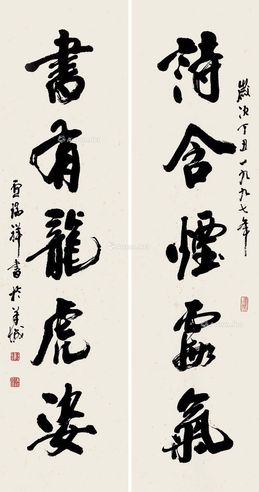 歲次丁丑一九九七年
詩含煙霞氣
書有龍虎姿
瑞祥書於羊城